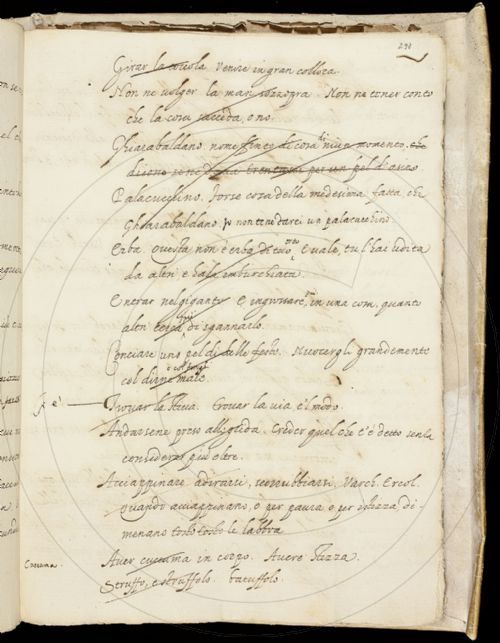 291
Girar la cociola. Venire in gran collora.
Non ne volger la man sozzogra. Non ne tener conto
che la cosa succeda, o no.
Gharabaldano. nome finto di cosa di niun momento. che
dicono se ne dava trentasei per un pel d'asino
Palacucchino. Forse cosa della medesima fatta che
Gharabaldano. Io non te ne darei un palacucchino
Erba. Questa non è erba di tuo orto. E vale, tu l'hai udita
da altri e imburchiata.
Entrar nel gigante. E ingrossare in una cosa, quanto
altri cerca più di sgannarlo.
Conciare uno pel dì delle feste. Nuocergli grandemente
col dirne male. o col fargli
Trovar la stiva. Trovar la via e'l modo.
Andarsene preso alle grida. Creder quel che t'è detto senza
considerar più oltre.
Acciappinare adirarsi, Varch. Ercol.
quando acciappinano, o per paura o per stizza di-
menano le labbra
Aver cuccuma in corpo. Avere stizza.
Cuccuma.
Struffo, e struffolo. batuffolo.